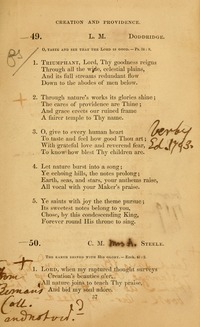 CREATION AND PROVIDENCE.
49. L. M. DODDRIDGE.
O, TASTE AND SEE THAT THE LORD IS GOOD.—Ps. 34: 8.
1. TRIUMPHANT, Lord, Thy goodness reigns
Through all the wide, celestial plains,
And its full streams redundant flow
Down to the abodes of men below.
2. Through nature's works its glories shine;
The cares of providence are Thine;
And grace erects our ruined frame
A fairer temple to Thy name.
3. O, give to every human heart
To taste and feel how good Thou art;
With grateful love and reverend fear,
To know how blest Thy children are.
4. Let nature burst into a song;
Ye echoing hills, the notes prolong;
Earth, seas, and stars, your anthems raise,
All vocal with your Maker's praise.
5. Ye saints with joy the theme pursue;
Its sweetest notes belong to you,
Chose, by this condescending King,
Forever round His throne to sing.
Ed. 1793.
50. C. M. STEELE.
1. LORD, when my raptured thought surveys
Creation's beauties o'er,
All nature joins to teach Thy praise,
And bid my soul adore.
Coll.
and not val.